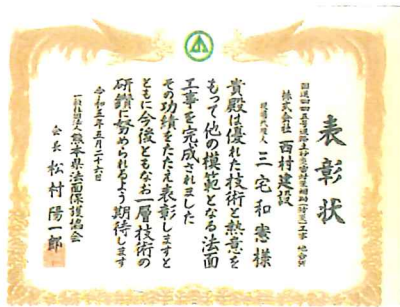 表彰状
国道四四五号道路土砂災害対策補助(防災)工事 他合併
株式会社 西村建設
現場代理人
三宅和憲様
貴殿は優れた技術と熱意を
もって他の模範となる法面
工事を完成されました
その功績をたたえ表彰しますと
ともに今後ともなお一層技術の
研鑽に努められるよう期待します
令和五年五月二十六日
一般社団法人 熊本県法面保護協会
会長 松村陽一郎